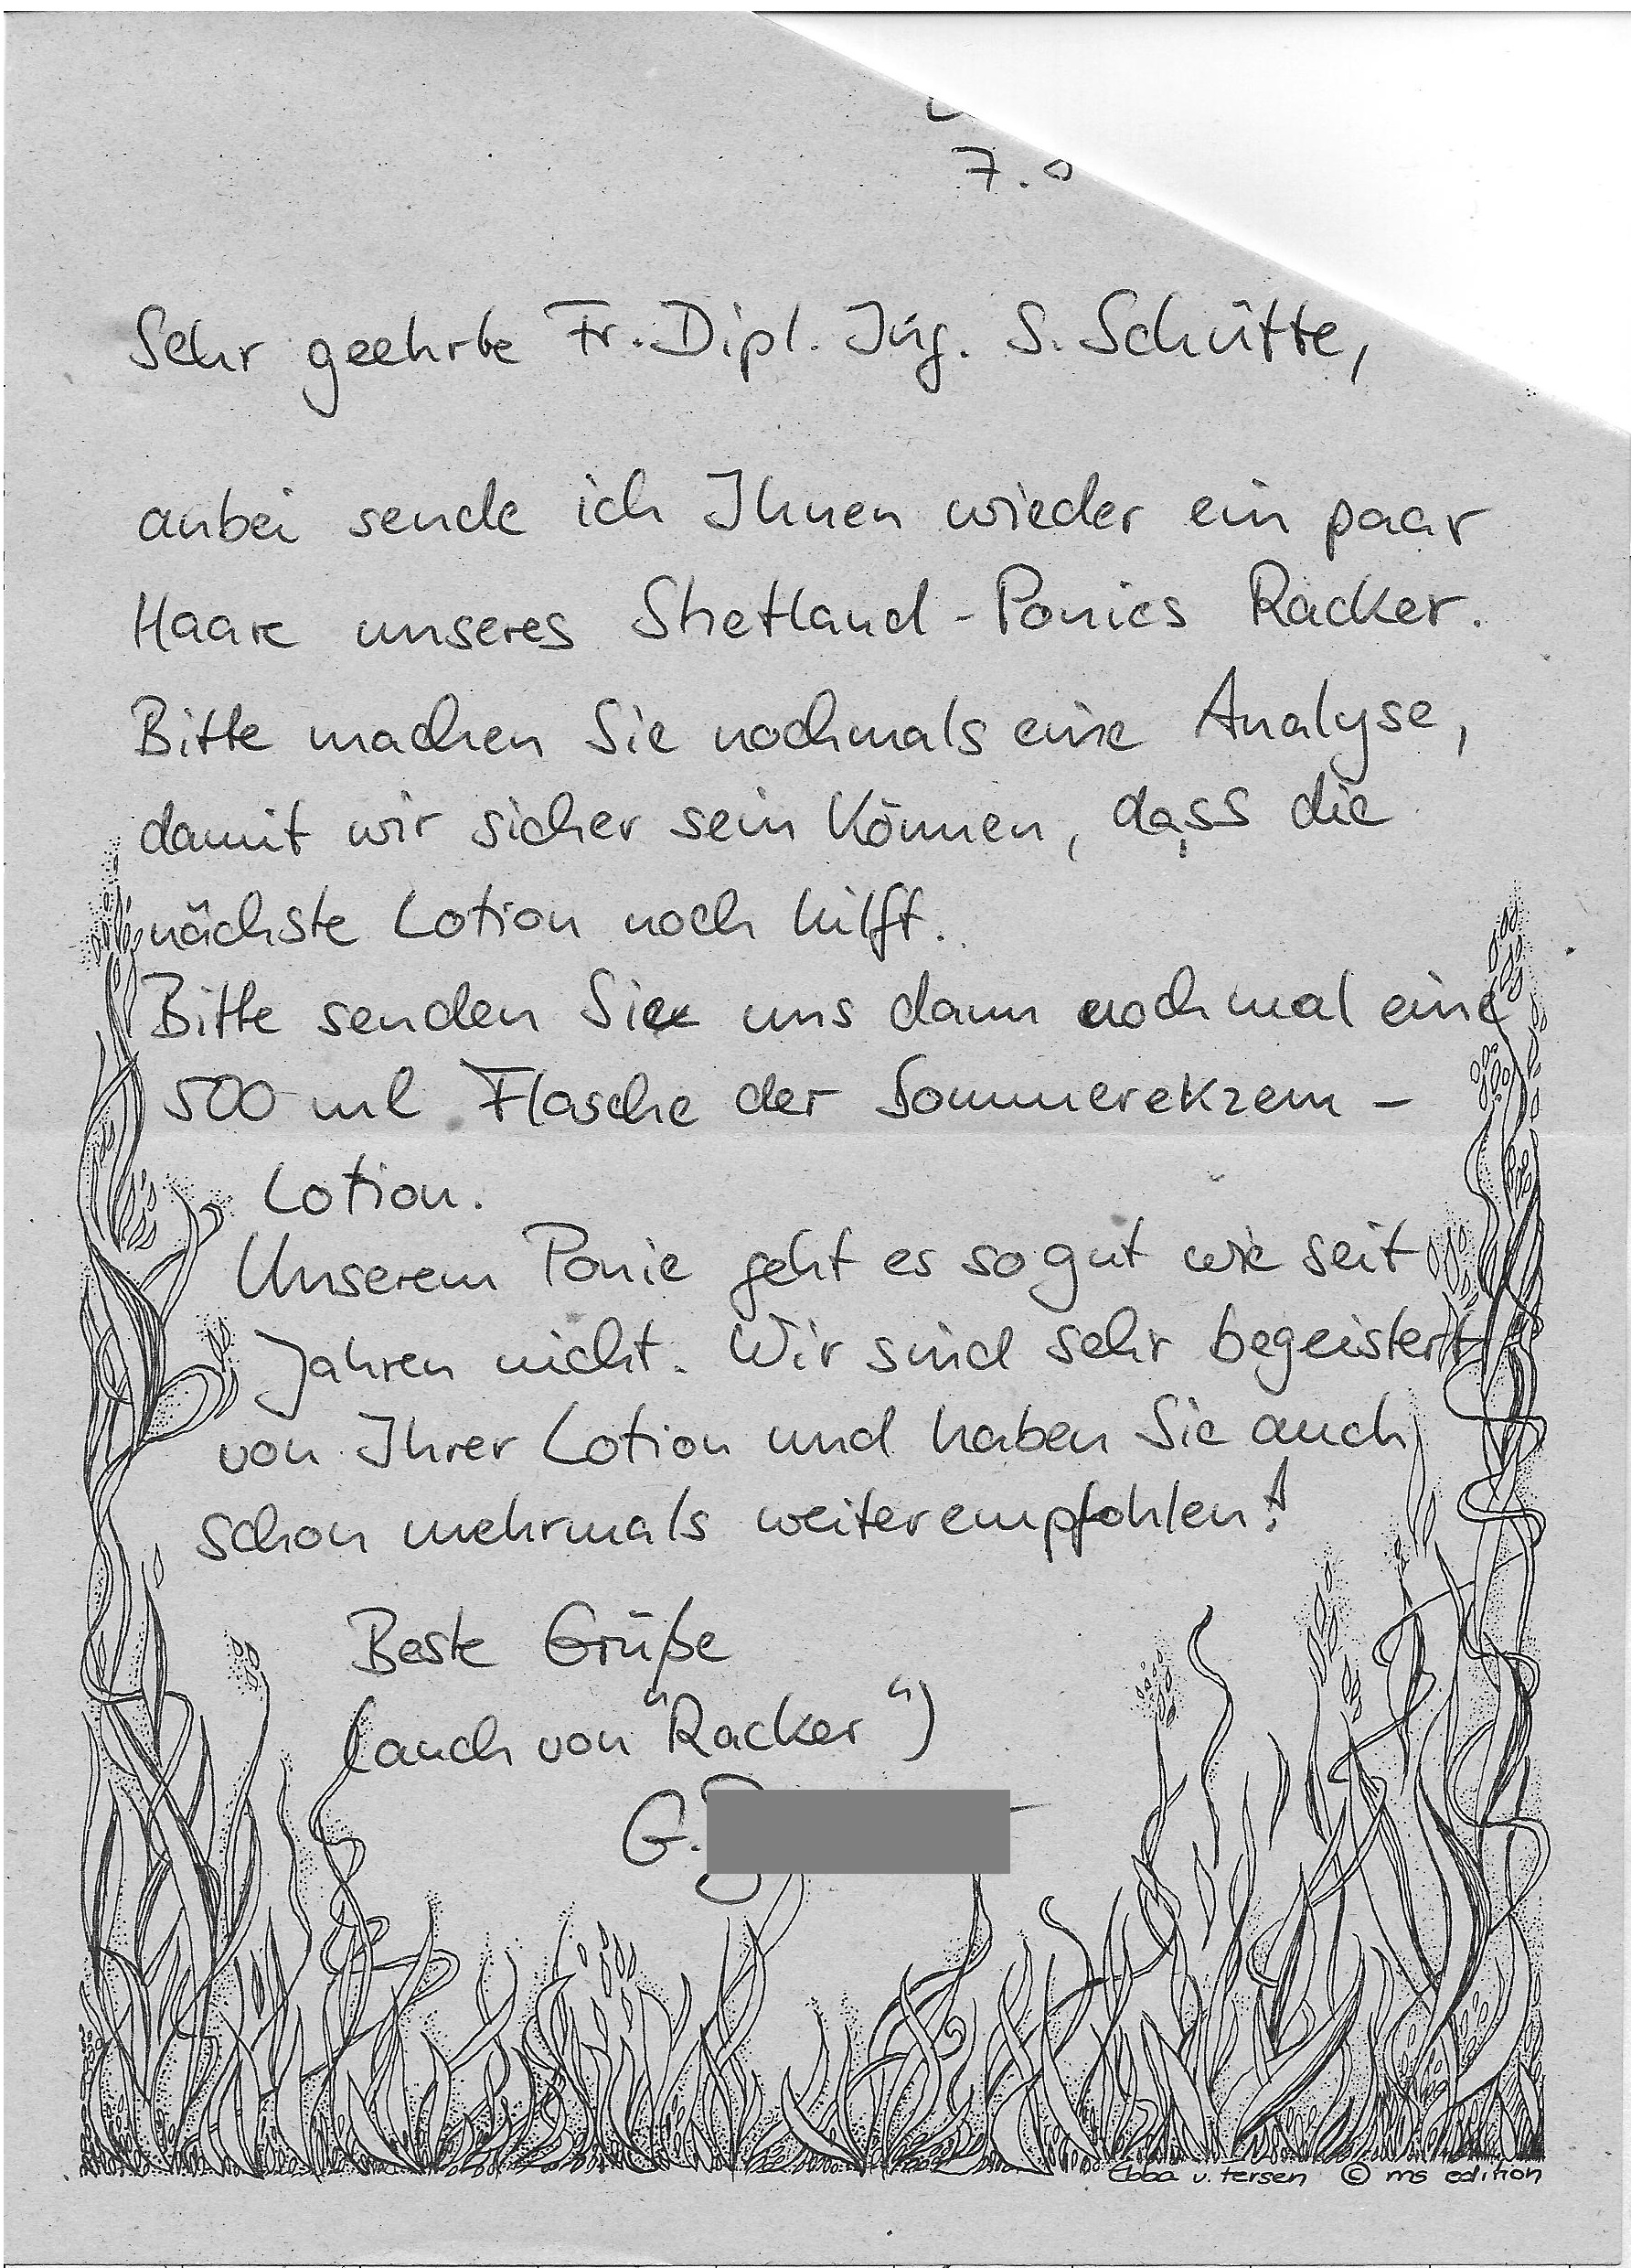 7.0
Sehr geehrte Fr. Dipl. Ing. S. Schütte,
anbei sende ich Ihnen wieder ein paar
Haare unseres Shetland-Ponies Racker.
Bitte machen Sie nochmals eine Analyse,
damit wir sicher sein können, dass die
nächste Lotion noch hilft.
Bitte senden Sie uns dann nochmal eine
500 ml Flasche der Sommerekzem-
Lotion.
Unserem Ponie geht es so gut wie seit
Jahren nicht. Wir sind sehr begeistert
von Ihrer Lotion und haben Sie auch
schon mehrmals weiterempfohlen!
Beste Grüße
(auch von "Racker")
G.
Ebba v. Tersen © ms edition